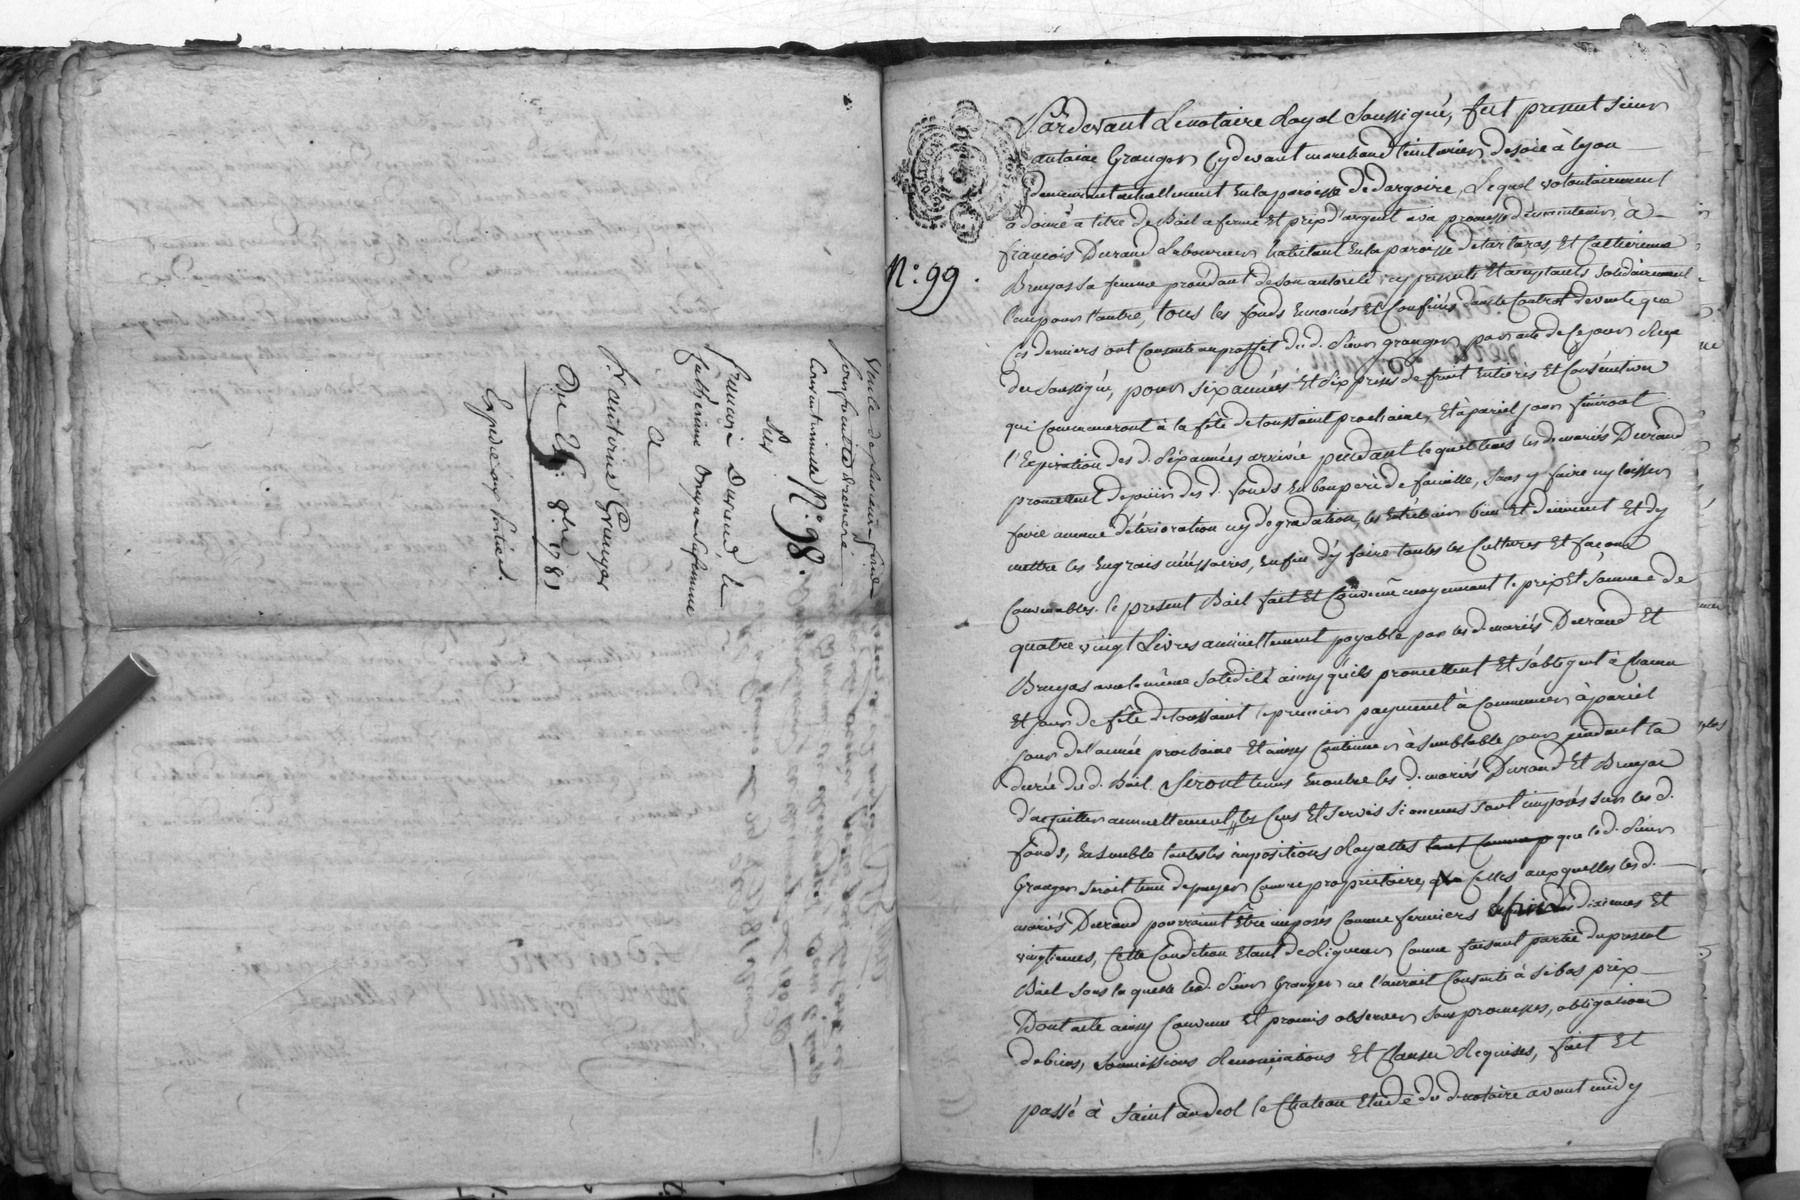 Vente de plusieurs fonds
Contrat minutte N.° 98.
Par
François Durand &
Catherine Bruyas sa femme
a
Sr. antoine Granger
Du 26. 8bre. 1781
Expedié aux parties.
N.° 99.
Pardevant Le notaire Royal Soussigné, fut present sieur
antoine Granger Cy devant marchand teinturier de soie à lyon
demeurant actuellement en la paroisse de dargoire, Lequel volontairement
a donné a titre de Bail a ferme Et prix d'argent avec promesse de maintenir à
françois Durand Laboureur habitant En la paroisse de tartaras, Et Catherine
Bruyas sa femme procédant de son autorité icy présents Et acceptants solidairement
l'un pour l'autre, tous les fonds Enoncés Et Confinés dans le Contrat de vente que
Ces derniers ont Consenti au proffit du d. Sieur granger par acte de Ce jour Reçu
du Soussigné, pour six années Et six prises de fruit Entieres Et Consécutives
qui Commenceront à la fête de toussaint prochaine, Et à pareil jour finiront
l'Expiration des d. six années arrivée pendant lequel tems les d. mariés Durand
promettent de jouir des d. fonds En bon pere de famille, sans y faire ny laisser
faire aucune déterioration ny dégradation, les Entretenir bien Et duëment Et d'y
mettre les Engrais nécéssaires, enfin d'y faire toutes les Cultures Et façons
Convenables. le présent Bail fait Et Convenu moyennant le prix Et somme de
quatre vingt Livres annuëllement payable par les d. mariés Durand Et
Bruyas avec la même solidité ainsy qu'ils promettent Et s'obligent à Chacun
Et jour de fête de toussaint le premier payement à Commencer à pareil
jour de l'année prochaine Et ainsy Continuer à semblable jour pendant la
durée du d. Bail. Seront tenus En outre les d. mariés Durand Et Bruyas
d'acquitter annuellement les Cens Et servis si aucuns sont imposés sur les d.
fonds, Ensemble toutes les impositions Royalles tant Comme que le d. Sieur
Granger seroit tenu de payer Comme propriétaire, que Celles auxquelles les d.
mariés Durand pourraient Être imposés Comme fermiers dixiemes Et
vingtiemes, Cette Condition Etant de Rigueur Comme faisant partie du présent
Bail sans laquelle led. Sieur Granger ne l'aurait Consenti à si bas prix
Dont acte ainsy Convenu Et promis observer sous promesses, obligations
de biens, soumissions Renonciations Et Clauses Requises, fait Et
passé à saint andeol le Chateau Etude du d. notaire avant midy